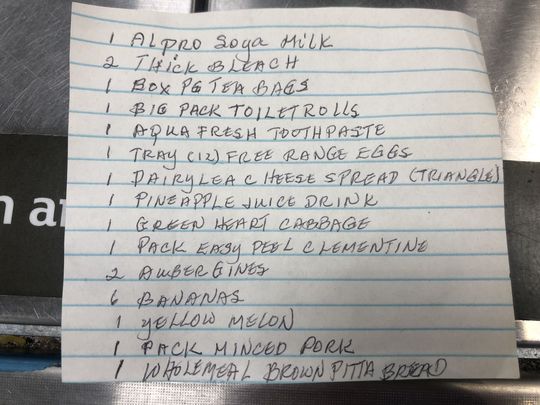 1 ALPRO SOYA MILK
2 THICK BLEACH
1 BOX PG TEA BAGS
1 BIG PACK TOILET ROLLS
1 AQUA FRESH TOOTHPASTE
1 TRAY (12) FREE RANGE EGGS
1 DAIRYLEA CHEESE SPREAD (TRIANGLE)
1 PINEAPPLE JUICE DRINK
1 GREEN HEART CABBAGE
1 PACK EASY PEEL CLEMENTINE
2 AMBERGINES
6 BANANAS
1 YELLOW MELON
1 PACK MINCED PORK
1 WHOLEMEAL BROWN PITTA BREAD